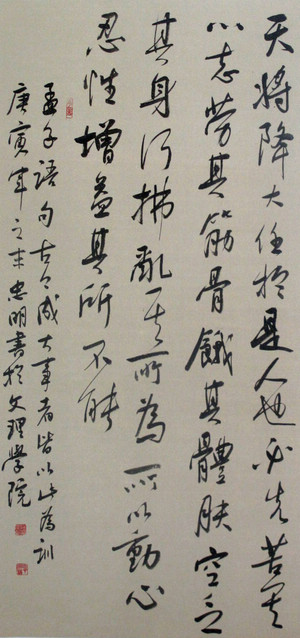 天将降大任於是人也必先苦其
心志劳其筋骨餓其體肤空乏
其身行拂亂其所為所以動心
忍性增益其所不能
孟子語句古今成大事者皆以此為訓
庚寅年之末忠明書於文理學院